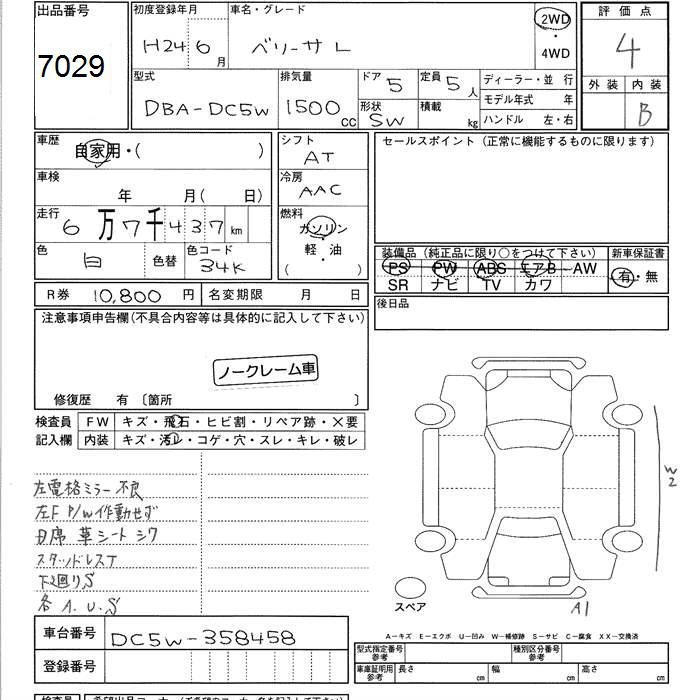 出品番号
7029
初度登録年月
H24 6月
車名・グレード
ベリーサ L
2WD
・
4WD
評価点
4
外装 内装
B
型式
DBA-DC5W
排気量
1500 cc
ドア 5
形状 SW
定員 5人
積載 kg
ディーラー・並 行
モデル年式 年
ハンドル 左・右
車歴
自家用・( )
車検
年 月( 日)
走行
6万7千437km
色
白
色替
色コード
34K
シフト
AT
冷房
AAC
燃料
ガソリン
・
軽・油
( )
セールスポイント(正常に機能するものに限ります)
装備品(純正品に限り○をつけて下さい)
PS PW ABS エアB AW
SR ナビ TV カワ
新車保証書
有・無
後日品
R券 10,800円
名変期限 月 日
注意事項申告欄(不具合内容等は具体的に記入して下さい)
ノークレーム車
修復歴 有 〔箇所 〕
検査員
記入欄
FW キズ・飛石・ヒビ割・リペア跡・X要
内装 キズ・汚レ・コゲ・穴・スレ・キレ・破レ
左電格ミラー不良
左F P/W作動せず
D席 革シートシワ
スタッドレスT
下廻りS
各A.U.S
W2
A1
スペア
車台番号
DC5W-358458
登録番号
A-キズ E-エクボ U-凹み W-補修跡 S-サビ C-腐食 XX-交換済
型式指定番号
参考
種別区分番号
参考
車庫証明用
参考
長さ cm
幅 cm
高さ cm
検査員